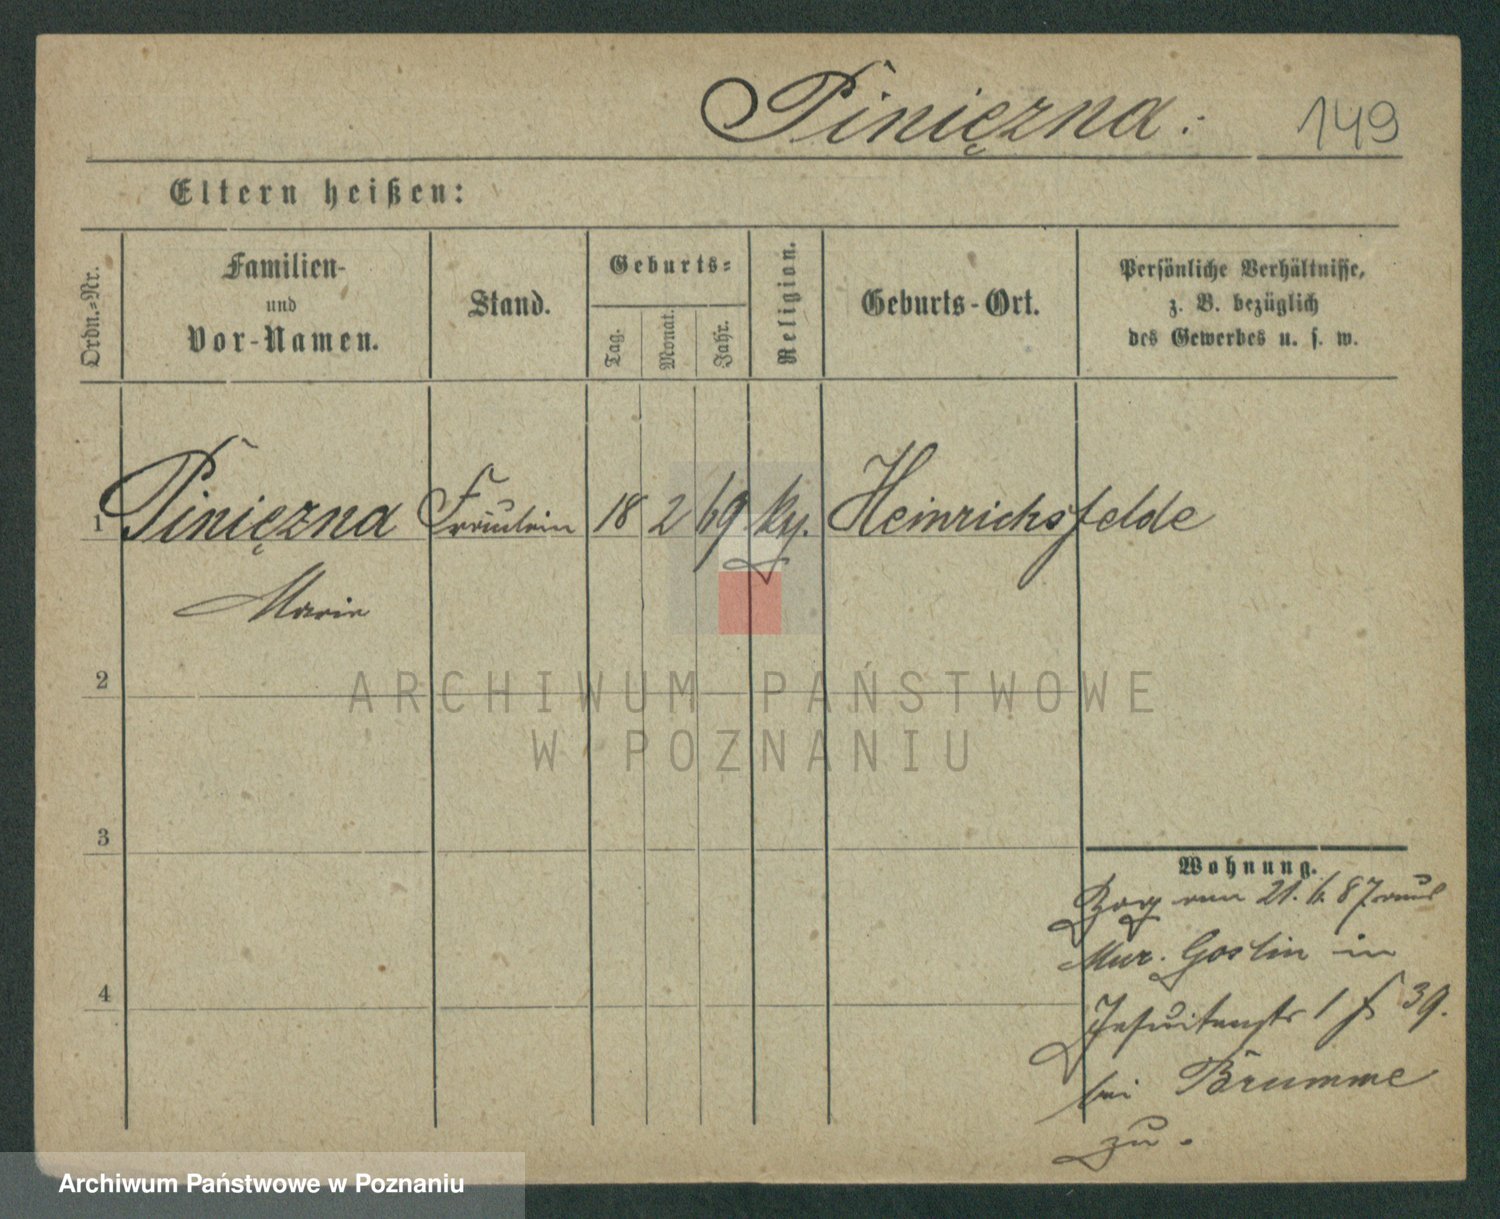 Piniężna. 149
Eltern heißen:
Ordn.-Nr.
Familien-
und
Vor-Namen.
Stand.
Geburts-
Tag.
Monat.
Jahr.
Religion.
Geburts-Ort.
Persönliche Verhältnisse,
z. B. bezüglich
des Gewerbes u. s. w.
1 Pinięzna Fräulein 18 2 69 Heinrichsfelde
Marie
2
ARCHIWUM PAŃSTWOWE
W POZNANIU
3
Wohnung.
Zog am 21. 6. 87 aus
Mur. Goslin in
Jesuitenstr 1 39.
bei Brumme
zu.
4
Archiwum Państwowe w Poznaniu